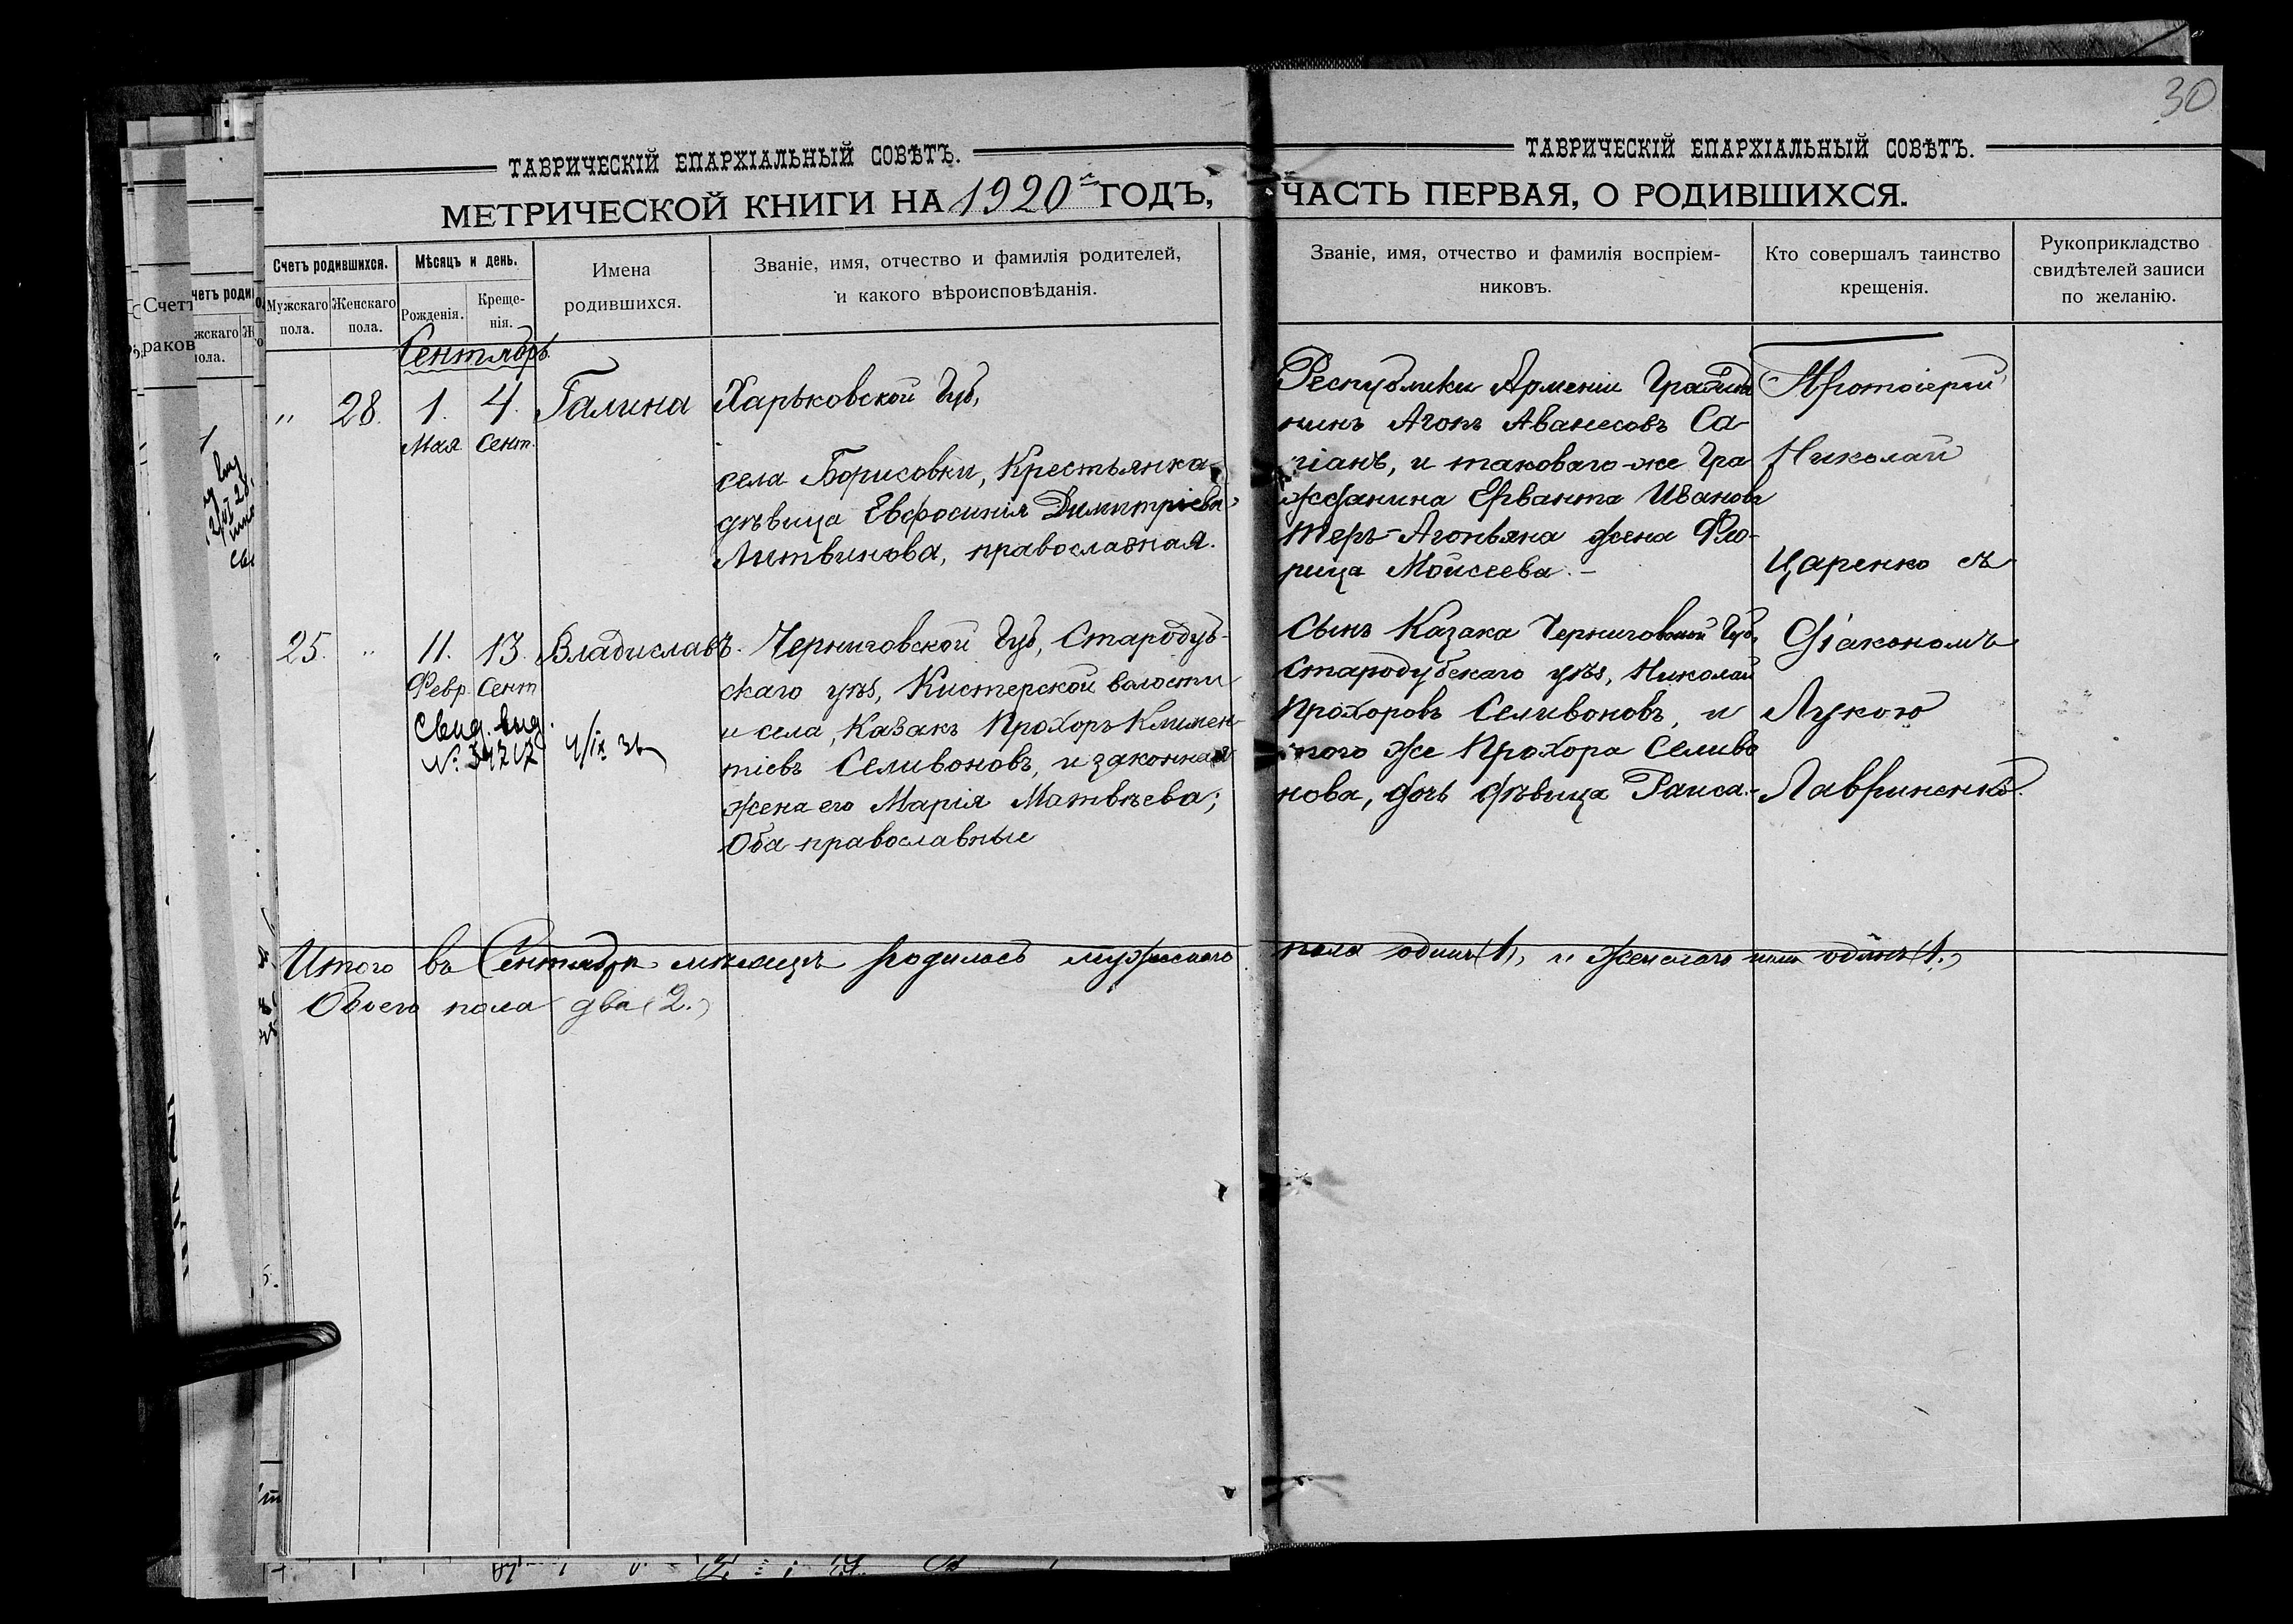 30
ТАВРИЧЕСКІЙ ЕПАРХІАЛЬНЫЙ СОВѢТЪ.
МЕТРИЧЕСКОЙ КНИГИ НА 1920й ГОДЪ,
Счетъ родившихся.
Мужскаго пола.
Женскаго пола.
Мѣсяцъ и день.
Рожденія.
Креще-
нія.
Имена
родившихся.
Званіе, имя, отчество и фамилія родителей,
и какого вѣроисповѣданія.
Сентябрь.
" 28. 1. 4. Галина
Мая Сент.
Харьковской губ,
села Борисовки, Крестьянка
дѣвица Евфосинія Димитріева
Литвинова, православная.
25. " 11. 13. Владиславъ.
Февр Сент
Свид. выд.
№ 34717 4/IX 31
Черниговской Губ, Стародуб-
скаго уѣз, Кистерской волости
и села, Казакъ Прохоръ Климен-
тіевъ Селивоновъ, и законная
жена его Марія Матвѣева;
Оба православные
Итого въ Сентябрѣ мѣсяцѣ родилось мужскаго
Обоего пола два (2.)
ТАВРИЧЕСКІЙ ЕПАРХІАЛЬНЫЙ СОВѢТЪ.
ЧАСТЬ ПЕРВАЯ, О РОДИВШИХСЯ.
Званіе, имя, отчество и фамилія воспріем-
никовъ.
Кто совершалъ таинство
крещенія.
Рукоприкладство
свидѣтелей записи
по желанію.
Республики Арменіи Гражда
нинъ Агопъ Аванесовъ Са-
гіанъ, и таковаго-же Гра
жданина Ерванта Иванов
Теръ-Агопьяна жена Фло-
рица Моисеева.-
Протоіерей
Николай
Царенко съ
Сынъ Казака Черниговской Губ,
Стародубскаго уѣз, Николай
Прохоровъ Селивоновъ, и
того же Прохора Селиво
нова, дочь дѣвица Раиса.-
Діакономъ
Лукою
Лавриненко.
пола одинъ (1), и женскаго пола одинъ (1.)